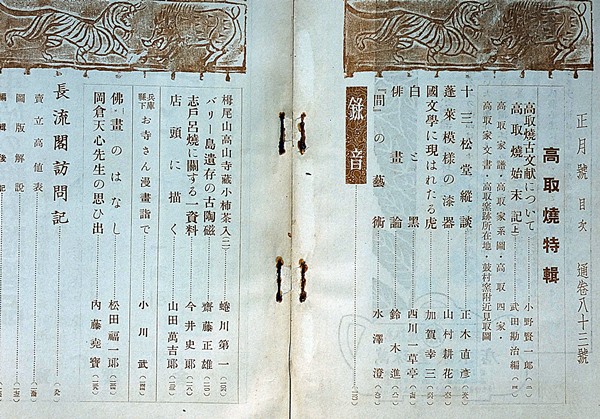 正月號 目次 通卷八十三號
高取燒特輯
高取燒古文献について 小野賢一郎
高取燒始末記(上) 武田勘治編
高取家文書・高取窯跡所在地・鼓村窯附近見取圖
十三松堂縱談 正木直彦
蓬萊模樣の漆器 山村耕花
國文學に現はれたる虎 加賀幸三
白と黑 西川一草亭
俳畫論 鈴木進
「間」の藝術 水澤澄
錄音
栂尾山高山寺蔵小柿茶入(二) 蜷川第一
バリー島遺存の古陶磁 齋藤正雄
志戸呂燒に關する一資料 今井史郎
店頭に描く 山田萬吉郎
兵庫縣下 お寺さん漫畫詣で 小川武
佛畫のはなし 松田福一郎
岡倉天心先生の思ひ出 内藤堯寶
長流閣訪問記
賣立高値表
圖版解説
編輯後記